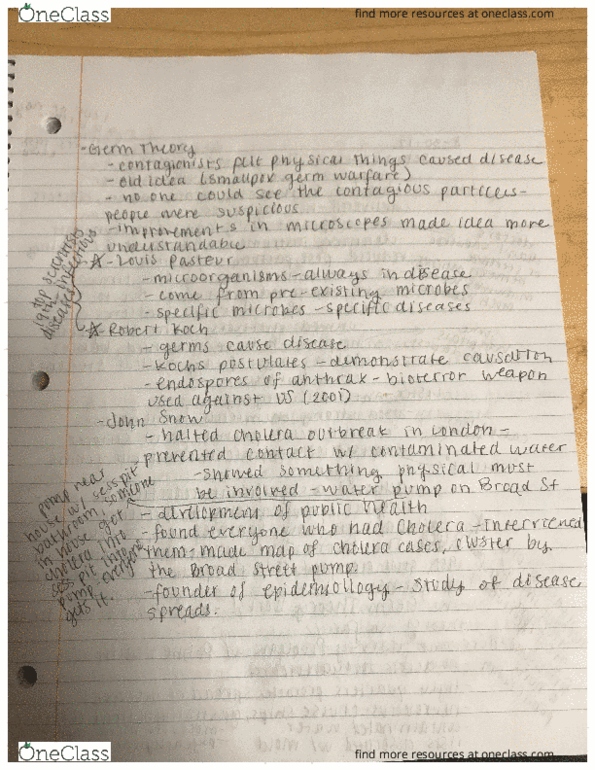 OneClass
find more resources at oneclass.com
- Germ Theory
- contagionists felt physical things caused disease
- old idea (smallpox germ warfare)
- no one could see the contagious particles -
people were suspicious
- improvements in microscopes made idea more
understandable
- Louis Pasteur
- microorganisms - always in disease
- come from pre-existing microbes
- specific microbes - specific diseases
- Robert Koch
- germs cause disease
- Kochs postulates - demonstrate causation
- endospores of anthrax - bioterror weapon
used against US (2001)
- John Snow
- halted cholera outbreak in London -
prevented contact w/ contaminated water
- showed something physical must
be involved - water pump on Broad St
- development of public health
- found everyone who had Cholera - Interviewed
them - made map of cholera cases, cluster by
the Broad Street pump.
- founder of epidemiollogy - study of disease
spreads.
top scientists
disease infectious
pump near
house w/ sess pit
bathroom, someone
in house got
cholera into
sess pit into
pump, everyone
gets it.
OneClass
find more resources at oneclass.com